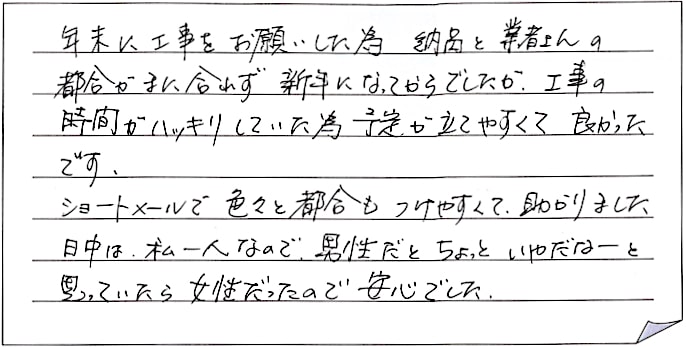 年末に工事をお願いした為 納品と業者さんの
都合がまに合わず 新年になってからでしたが、工事の
時間がハッキリしていた為 予定が立てやすくて 良かった
です。
ショートメールで 色々と都合も つけやすくて、助かりました
日中は、私一人なので、男性だと ちょっと いやだなーと
思っていたら 女性だったので 安心でした。